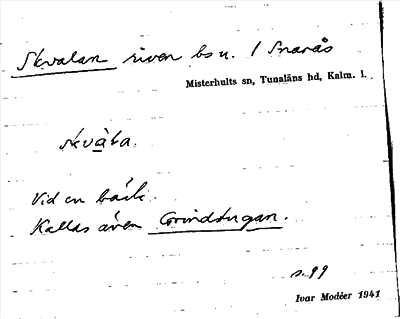 Skvalan riven bs u. / Snarås
Misterhults sn, Tunaläns hd, Kalm. l.
skvàla.
Vid en bäck.
Kallas även Grindstugan.
s. 99
Ivar Modéer 1941